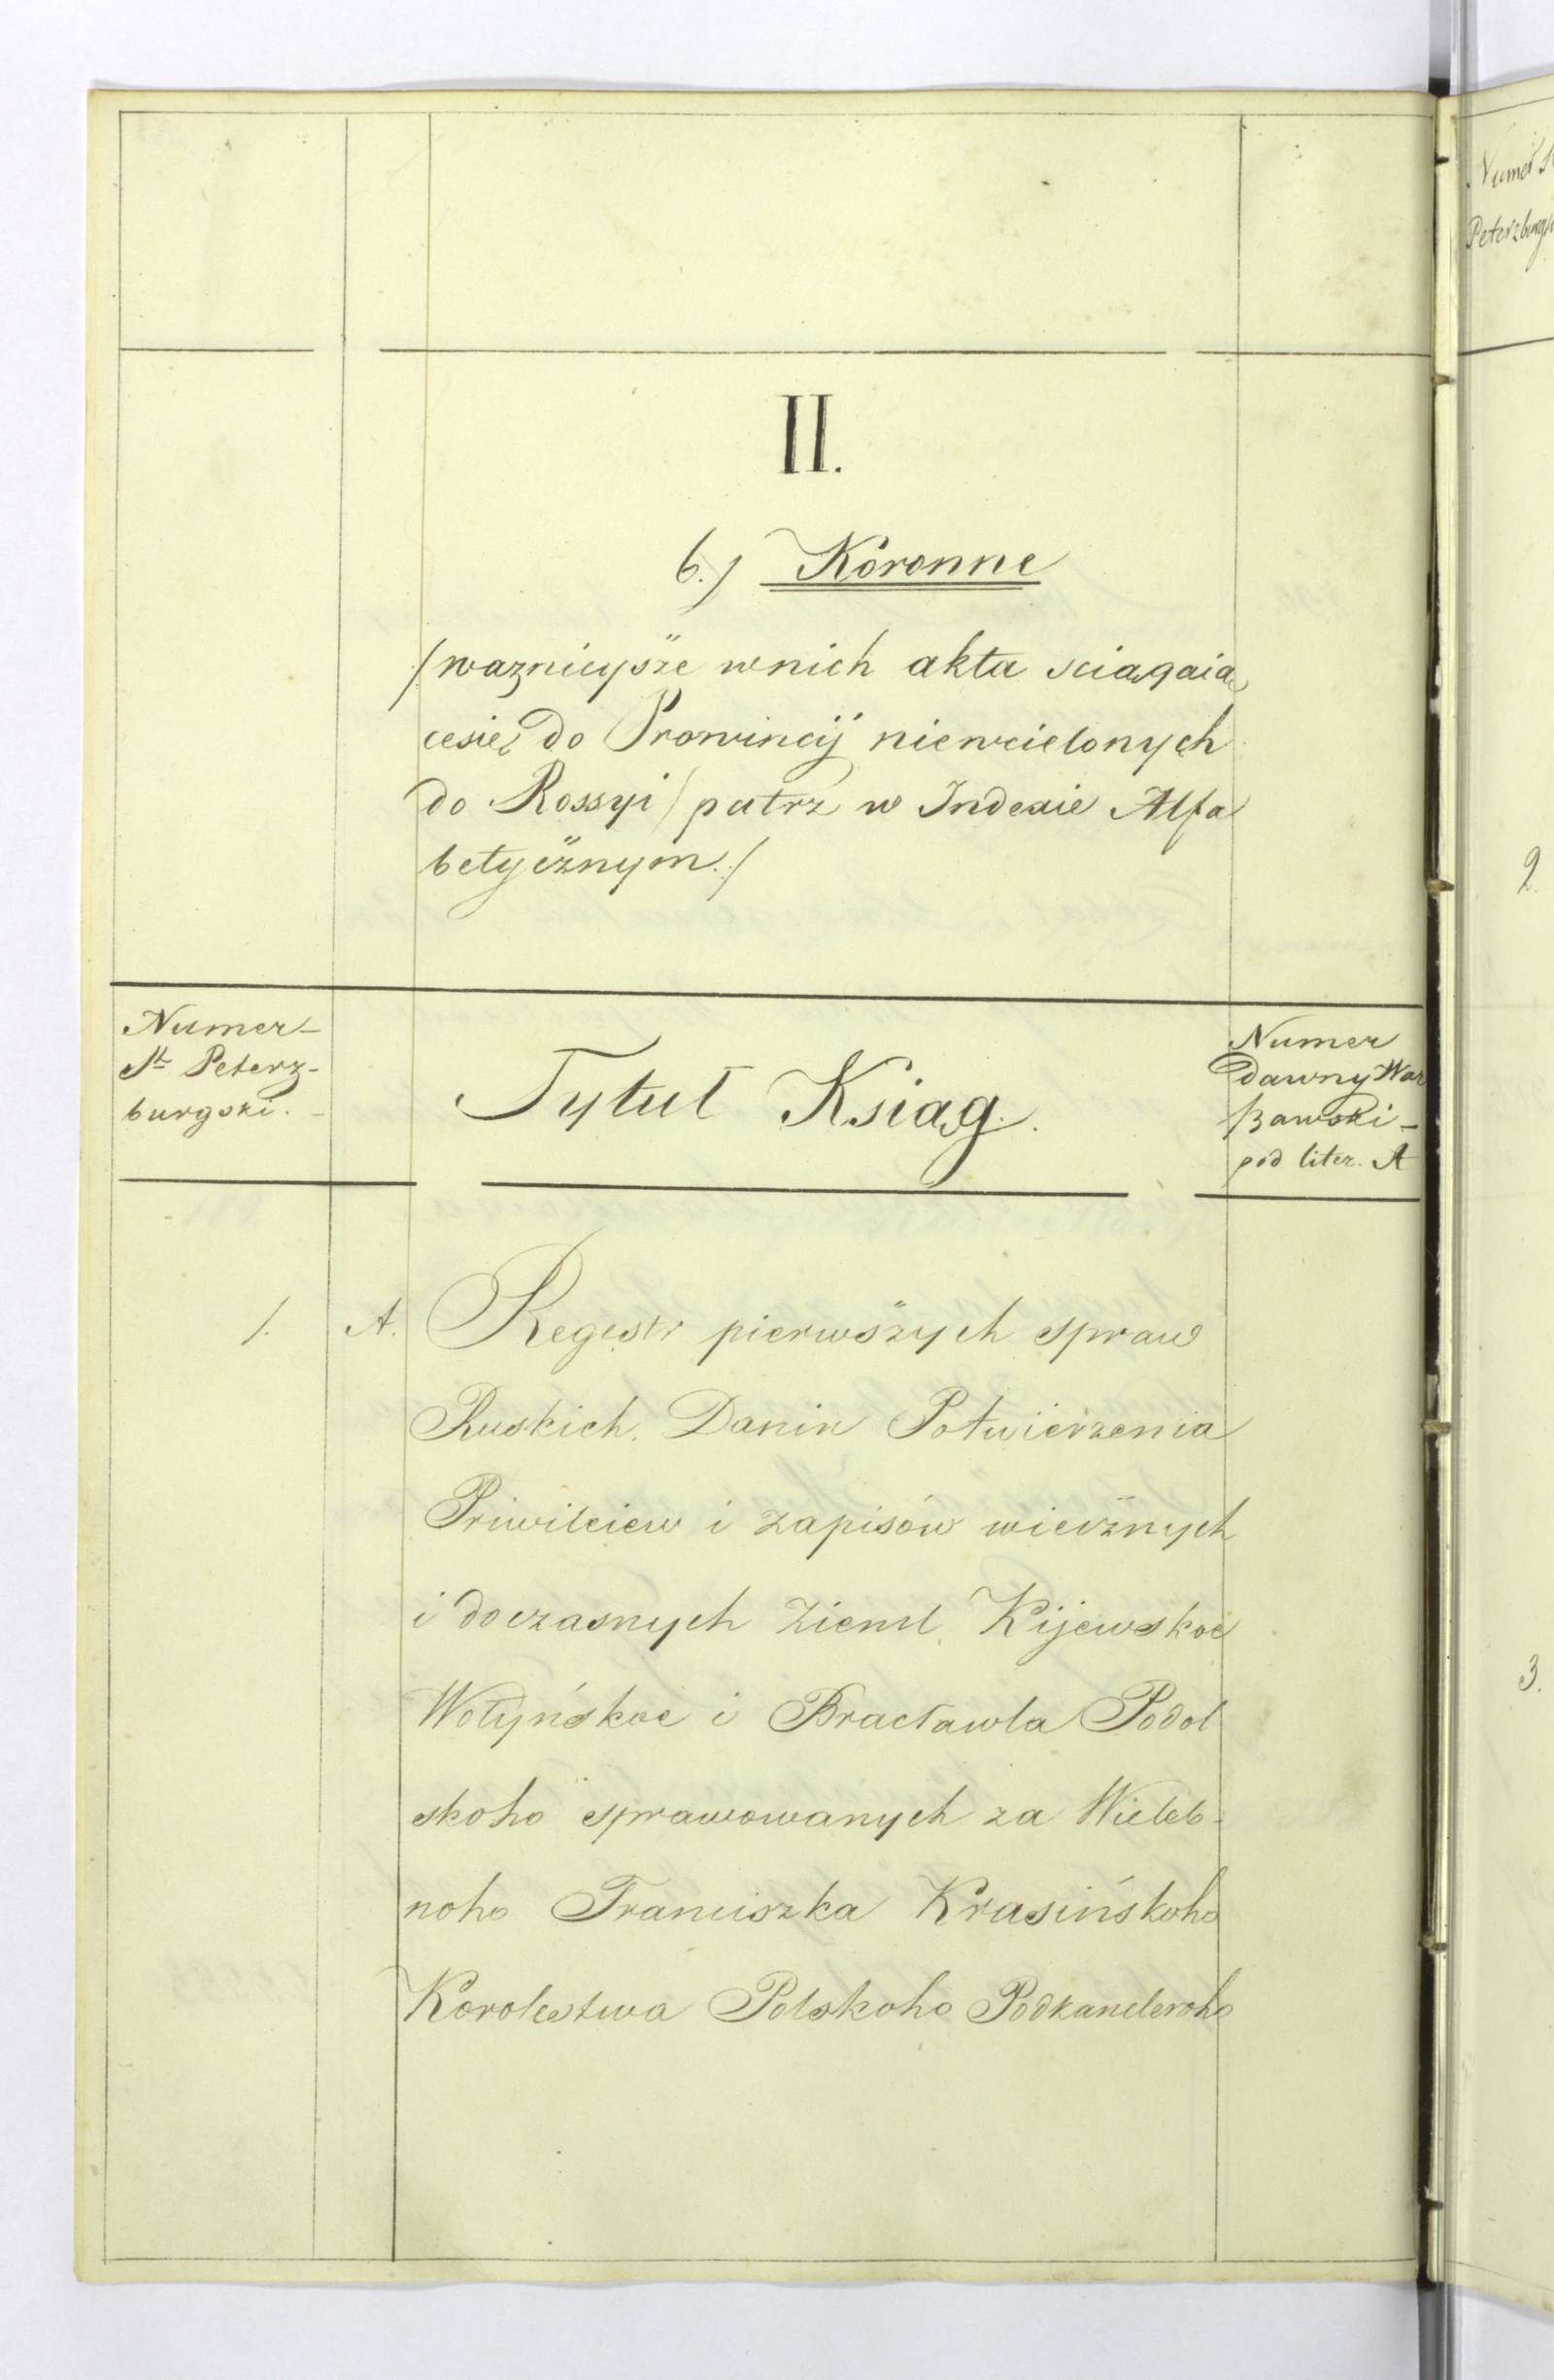 II.
b.) Koronne
/waznieysze wnich akta sciągaią
cesię do Prowincij niewcielonych
do Rossyi / patrz w Indexie Alfa
betycznym./
Numer
St Peterz-
burgski.
Tytuł Ksiąg.
Numer
Dawny War
szawski
pod liter. A
1. A. Regestr pierwszych spraw
Ruskich. Danin Potwierzenia
Priwileiew i zapisów wiecznych
i doczasnych Zieml. Kijewskoe
Wołyńskoe i Bracławla Podol
skoho sprawowanych za Wieleb-
noho Franciszka Krasińskoho
Korolestwa Polskoho Podkancleroho
Numer St
Peterzburgs
2.
3.